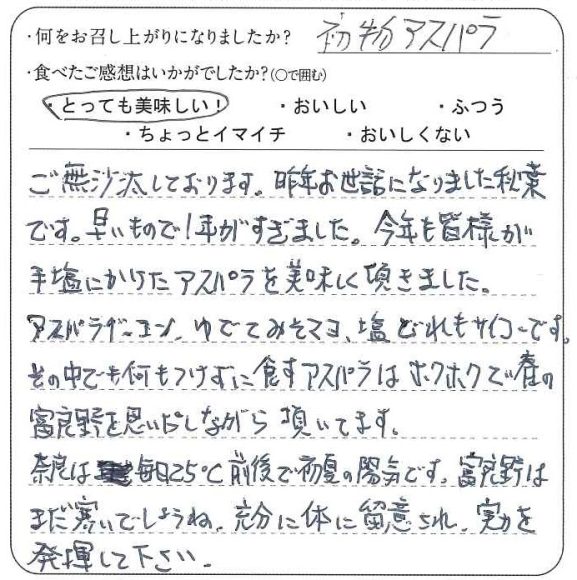 ・何をお召し上がりになりましたか? 初物アスパラ
・食べたご感想はいかがでしたか?(○で囲む)
・とっても美味しい! ・おいしい ・ふつう
・ちょっとイマイチ ・おいしくない
ご無沙汰しております。昨年お世話になりました秋葉
です。早いもので1年がすぎました。今年も皆様が
手塩にかけたアスパラを美味しく頂きました。
アスパラベーコン、ゆでてみそマヨ、塩 どれもサイコーです。
その中でも何もつけずに食すアスパラはホクホクで春の
富良野を思いだしながら 頂いてます。
奈良は 毎日25℃前後で初夏の陽気です。富良野は
まだ寒いでしょうね。充分に体に留意され、実力を
発揮して下さい。